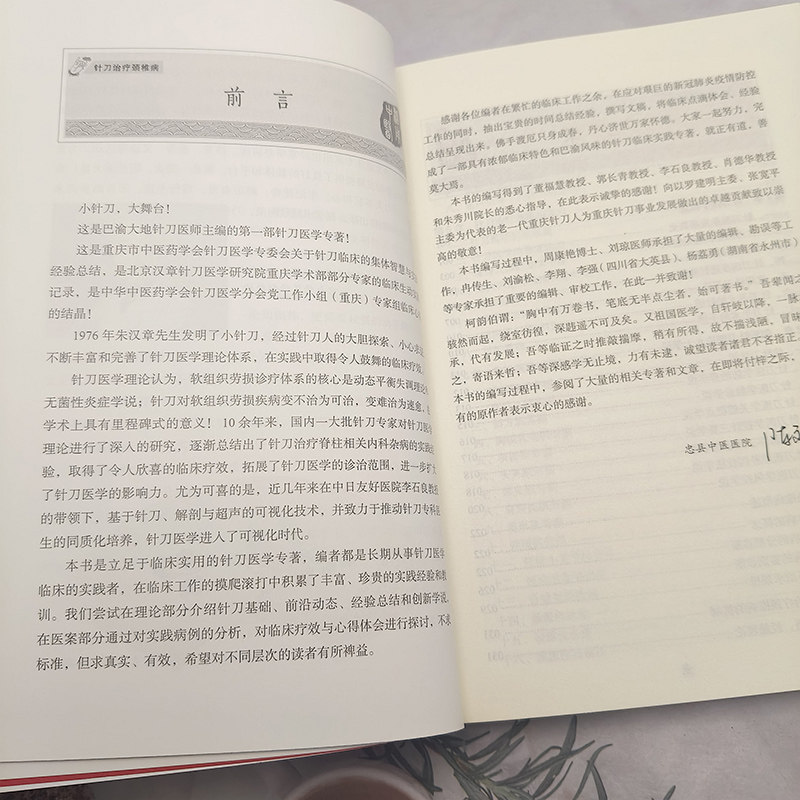 针刀治疗颈椎病
前 言
小针刀，大舞台！
这是巴渝大地针刀医师主编的第一部针刀医学专著！
这是重庆市中医药学会针刀医学专委会关于针刀临床的集体智慧与
经验总结，是北京汉章针刀医学研究院重庆学术部部分专家的临床生动
记录，是中华中医药学会针刀医学分会党工作小组（重庆）专家组临床心
的结晶！
1976 年朱汉章先生发明了小针刀，经过针刀人的大胆探索、小心求
不断丰富和完善了针刀医学理论体系，在实践中取得令人鼓舞的临床疗效。
针刀医学理论认为，软组织劳损诊疗体系的核心是动态平衡失调理论
无菌性炎症学说；针刀对软组织劳损疾病变不治为可治，变难治为速愈，在
学术上具有里程碑式的意义！10 余年来，国内一大批针刀专家对针刀医
理论进行了深入的研究，逐渐总结出了针刀治疗脊柱相关内科杂病的实践经
验，取得了令人欣喜的临床疗效，拓展了针刀医学的诊治范围，进一步扩大
了针刀医学的影响力。尤为可喜的是，近几年来在中日友好医院李石良教授
的带领下，基于针刀、解剖与超声的可视化技术，并致力于推动针刀专科医
生的同质化培养，针刀医学进入了可视化时代。
本书是立足于临床实用的针刀医学专著，编者都是长期从事针刀医学
临床的实践者，在临床工作的摸爬滚打中积累了丰富、珍贵的实践经验和教
训。我们尝试在理论部分介绍针刀基础、前沿动态、经验总结和创新学说，
在医案部分通过对实践病例的分析，对临床疗效与心得体会进行探讨，不求
标准，但求真实、有效，希望对不同层次的读者有所裨益。
感谢各位编者在繁忙的临床工作之余，在应对艰巨的新冠肺炎疫情防控
工作的同时，抽出宝贵的时间总结经验，撰写文稿，将临床点滴体会、经验
总结呈现出来。佛手渡厄只身成春，丹心济世万家怀德。大家一起努力，完
成了一部具有浓郁临床特色和巴渝风味的针刀临床实践专著，就正有道，善
莫大焉。
本书的编写得到了董福慧教授、郭长青教授、李石良教授、肖德华教授
和朱秀川院长的悉心指导，在此表示诚挚的感谢！向以罗建明主委、张宽平
主委为代表的老一代重庆针刀人为重庆针刀事业发展做出的卓越贡献致以崇
高的敬意！
本书编写过程中，周康艳博士、刘琼医师承担了大量的编辑、勘误等工
作，冉传生、刘渝松、李翔、李强（四川省大英县）、杨荔勇（湖南省永州市）
等专家承担了重要的编辑、审校工作，在此一并致谢！
柯韵伯谓：“胸中有万卷书，笔底无半点尘者，始可著书。”吾辈闻之
骇然而起，绕室彷徨，深瞡遥不可及矣。又祖国医学，自轩岐以降，一脉
承，代有发展；吾等临证之时推敲揣摩，稍有所得，故不揣浅陋，冒昧
之，寄语来哲；吾等深感学无止境，力有未逮，诚望读者诸君不吝指正。
本书的编写过程中，参阅了大量的相关专著和文章，在即将付梓之际，
有的原作者表示衷心的感谢。
忠县中医医院